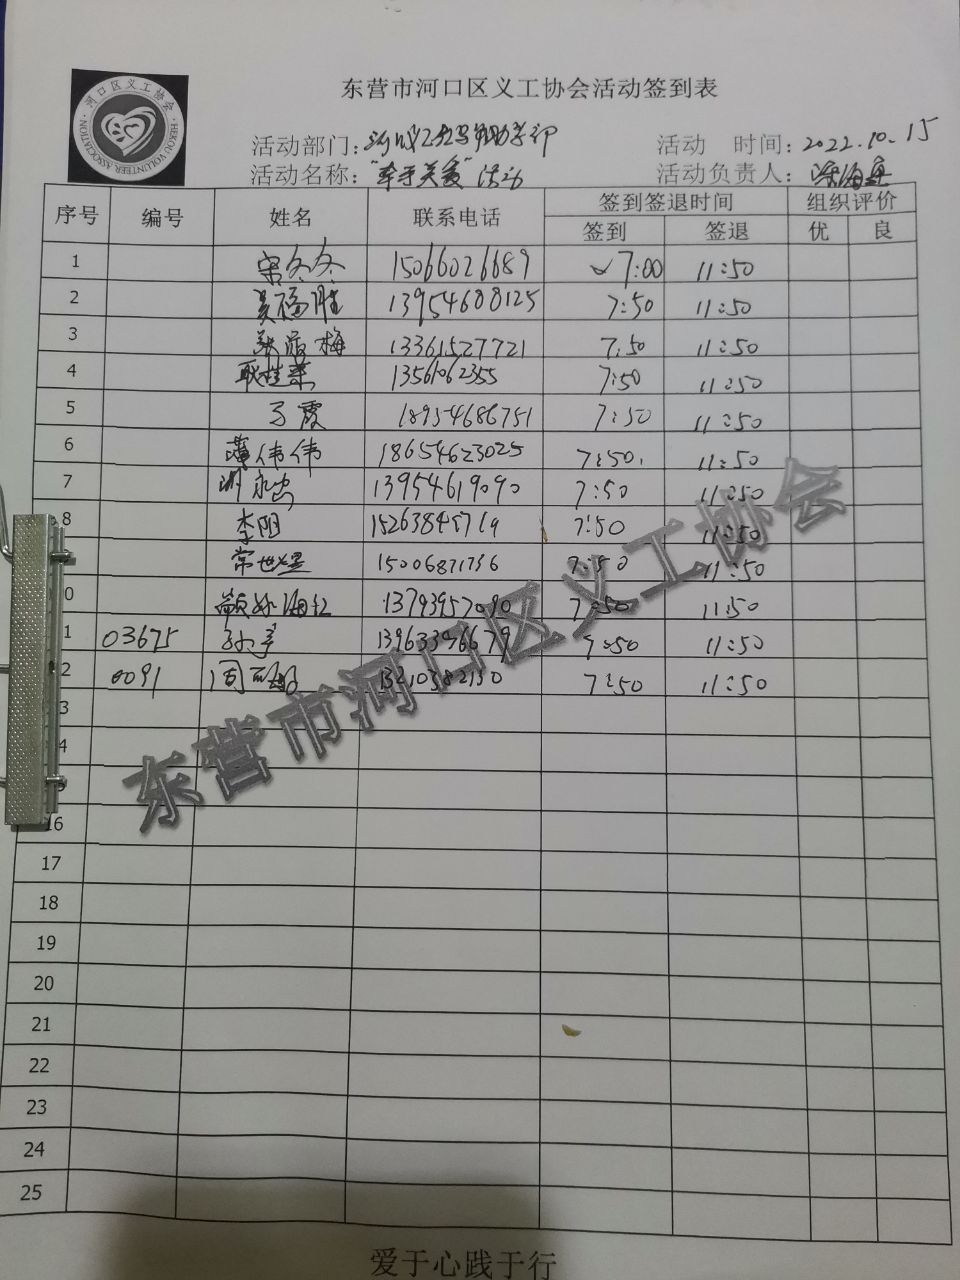 河口区义工协会
HEKOU VOLUNTEER ASSOCIATION
东营市河口区义工协会活动签到表
活动部门： 活动 时间：2022.10.15
活动名称："牵手关爱"活动 活动负责人：
序号 编号 姓名 联系电话 签到签退时间 组织评价
签到 签退 优 良
1 宋冬冬 15066026689 7:00 11:50
2 吴福胜 13954688125 7:50 11:50
3 梅 13361527721 7:50 11:50
4 13561062355 7:50 11:50
5 于霞 18954686751 7:50 11:50
6 薄伟伟 18654623025 7:50. 11:50
7 永忠 13954619090 7:50 11:50
8 李阳 15263845719 7:50 11:50
常世 15006871736 7:50 11:50
0 海红 13793957090 7:50 11:50
1 03675 孙 13963396679 7:50 11:50
2 0091 周 13210382130 7:50 11:50
3
4
5
16
17
18
19
20
21
22
23
24
25
东营市河口区义工协会
爱于心践于行